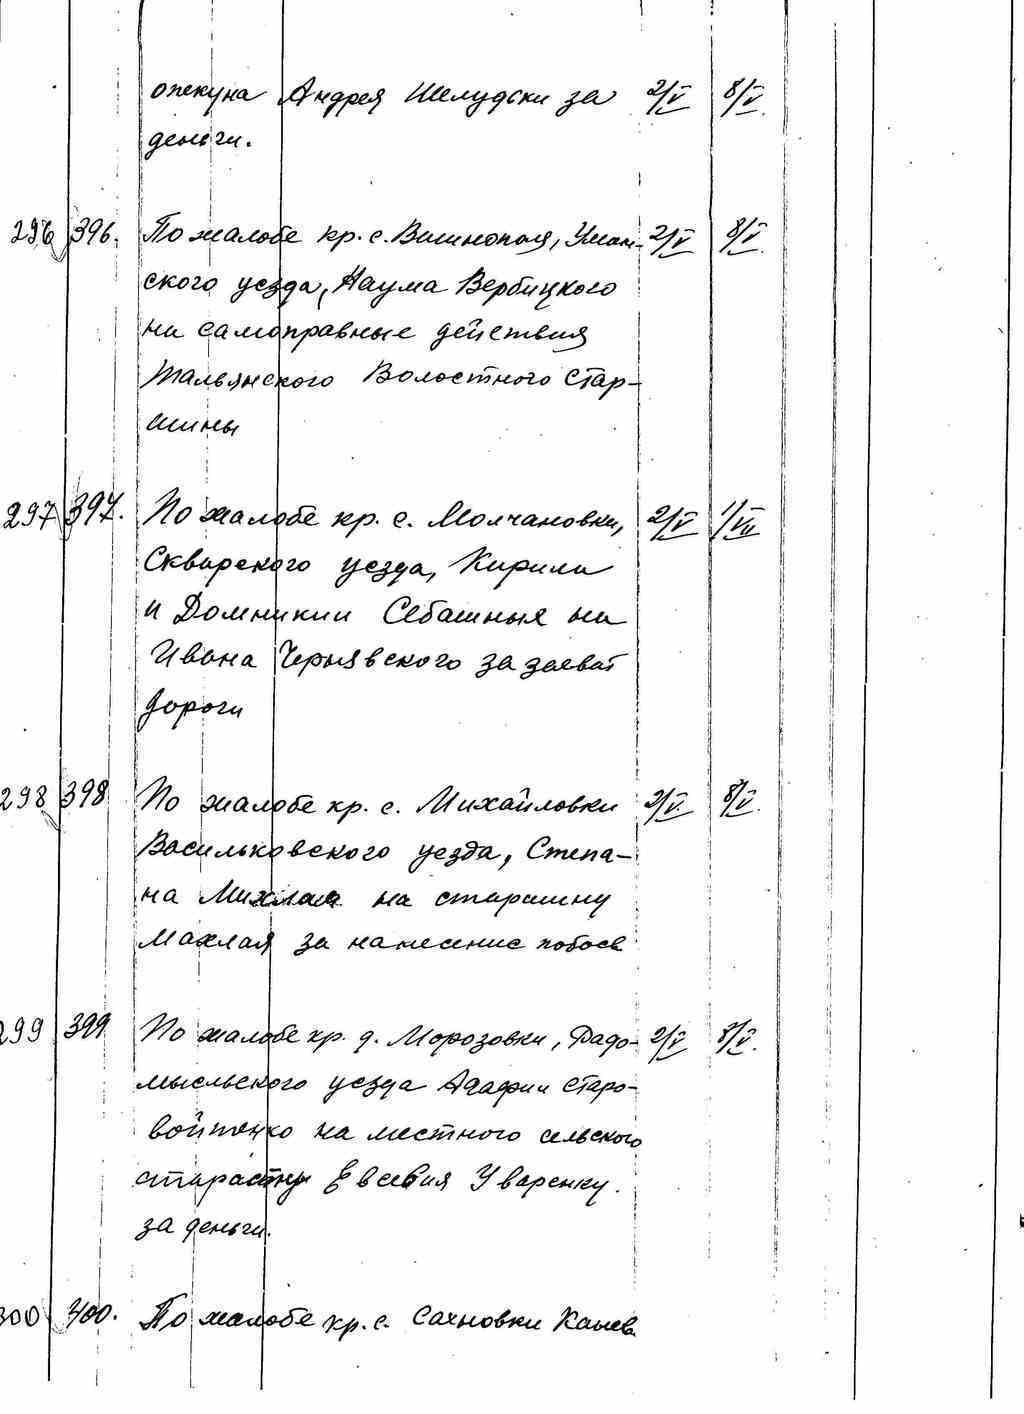 опекуна Андрея Шелудски за 2/V 8/V.
деньги.
296 396. По жалобе кр. с. Вишнополя, Уман- 2/V 8/V.
ского уезда, Наума Вербицкого
на самоправные действия
Тальянского Волостного Стар-
шины
297 397. По жалобе кр. с. Молчановки, 2/V 1/VII
Сквирского уезда, Кирила
и Домникии Себашных на
Ивана Чернявского за захват
дороги
298 398 По жалобе кр. с. Михайловки 2/V 8/V.
Васильковского уезда, Степа-
на Михлая на старшину
Махлая за нанесение побоев
299 399 По жалобе кр. д. Морозовки, Радо- 2/V 8/V.
мысльского уезда Агафии Старо-
войтенко на местного сельского
старосту Евсевия Уваренку.
за деньги.
300 400. По жалобе кр. с. Сахновки Канев.